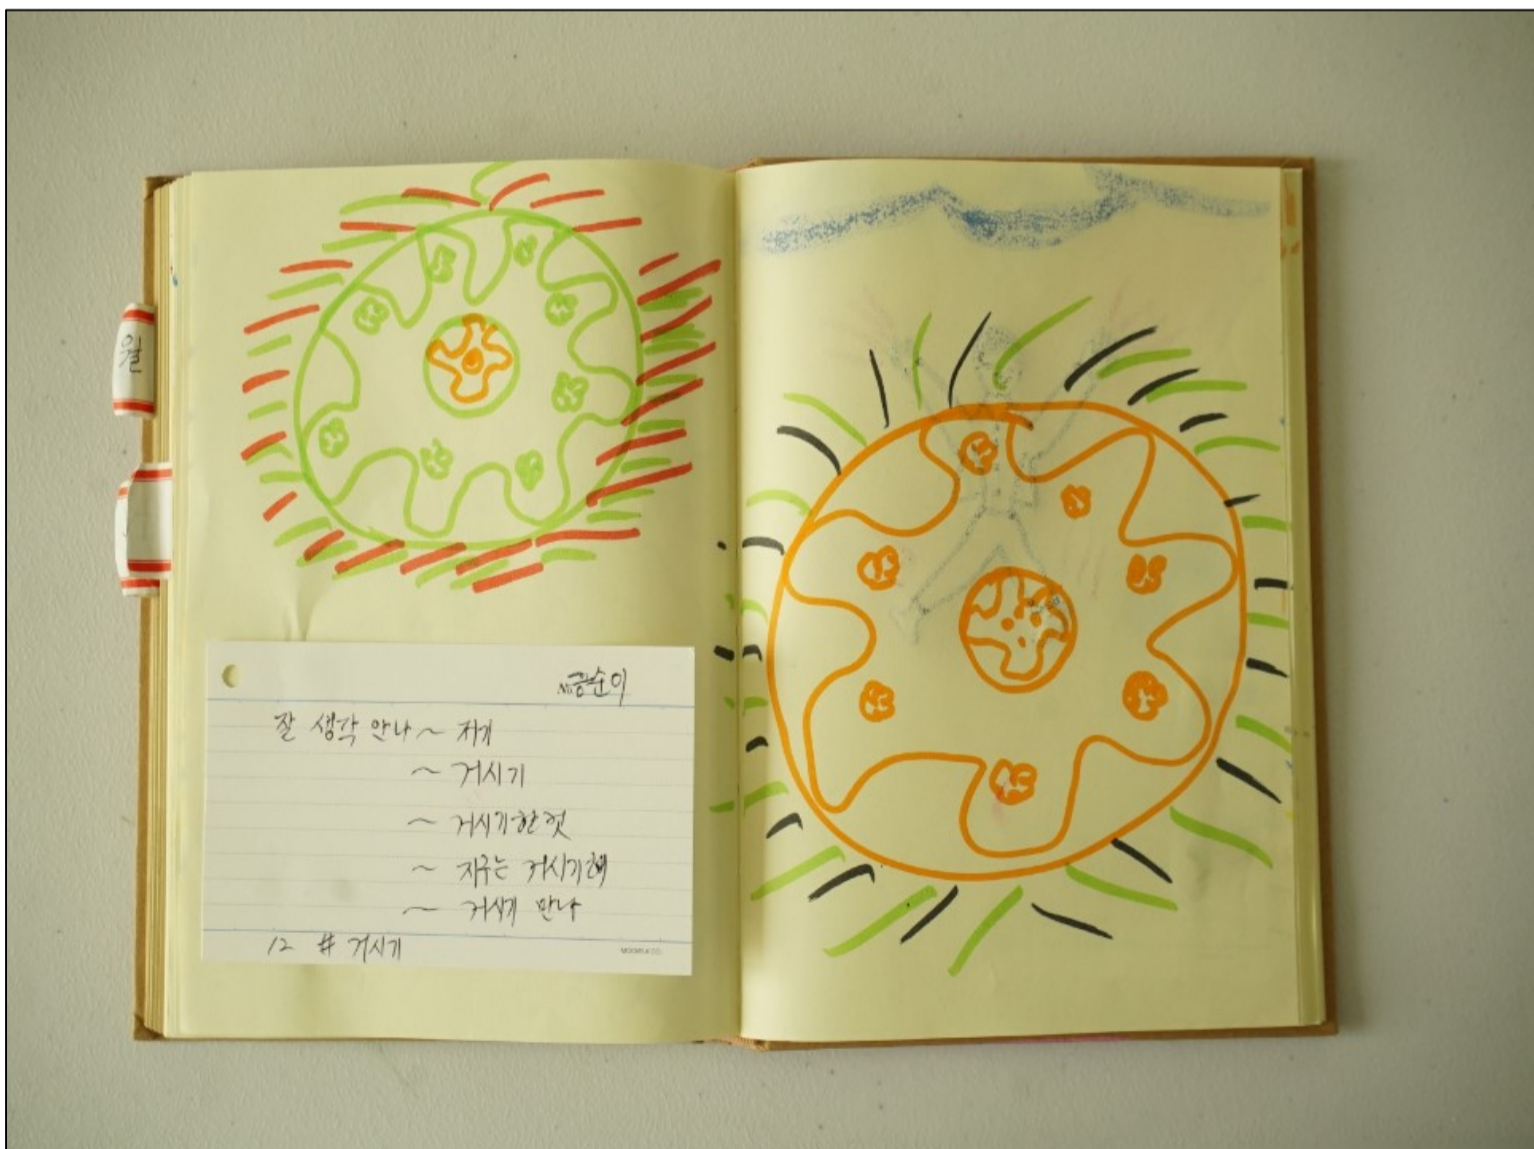 월
금순이
잘 생각 안나 ~ 저기
~ 거시기
~ 거시기한 것
~ 지구는 거시기해
~ 거시기 만나
12 # 거시기